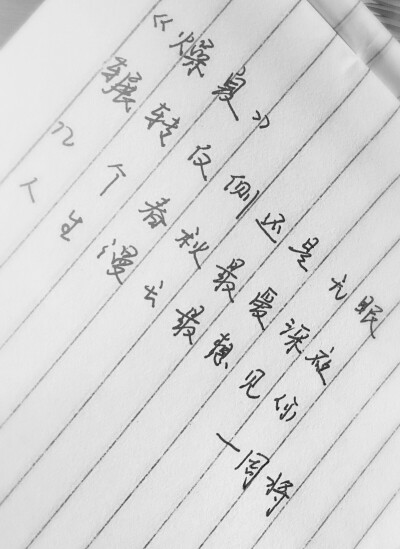 《燥夏》
辗转反侧还是无眠
22个春秋最爱深夜
人生漫长最想见你
—周将